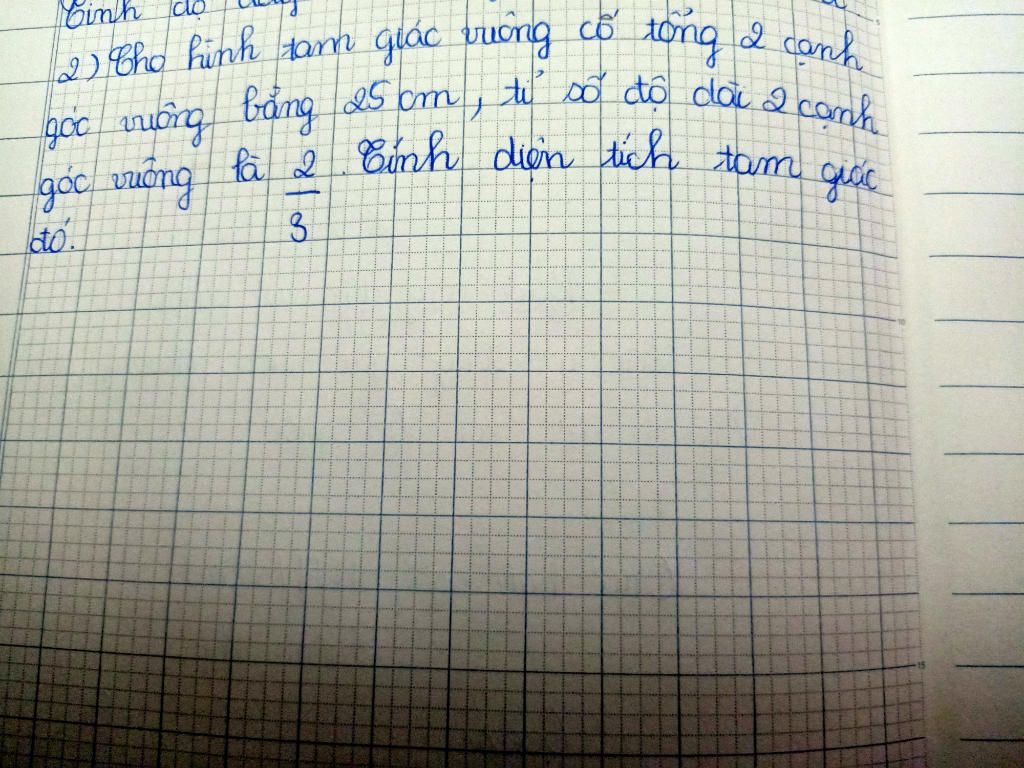 Tính độ
2) Cho hình tam giác vuông có tổng 2 cạnh
góc vuông bằng 25 cm, tỉ số độ dài 2 cạnh
góc vuông là 2/3. Tính diện tích tam giác
đó.